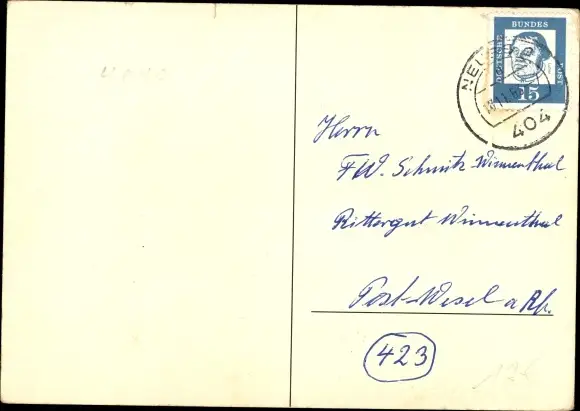 DEUTSCHE BUNDES POST
15
404
Herrn
FW. Schmitz Winnenthal
Rittergut Winnenthal
Post-Wesel a Rh.
423